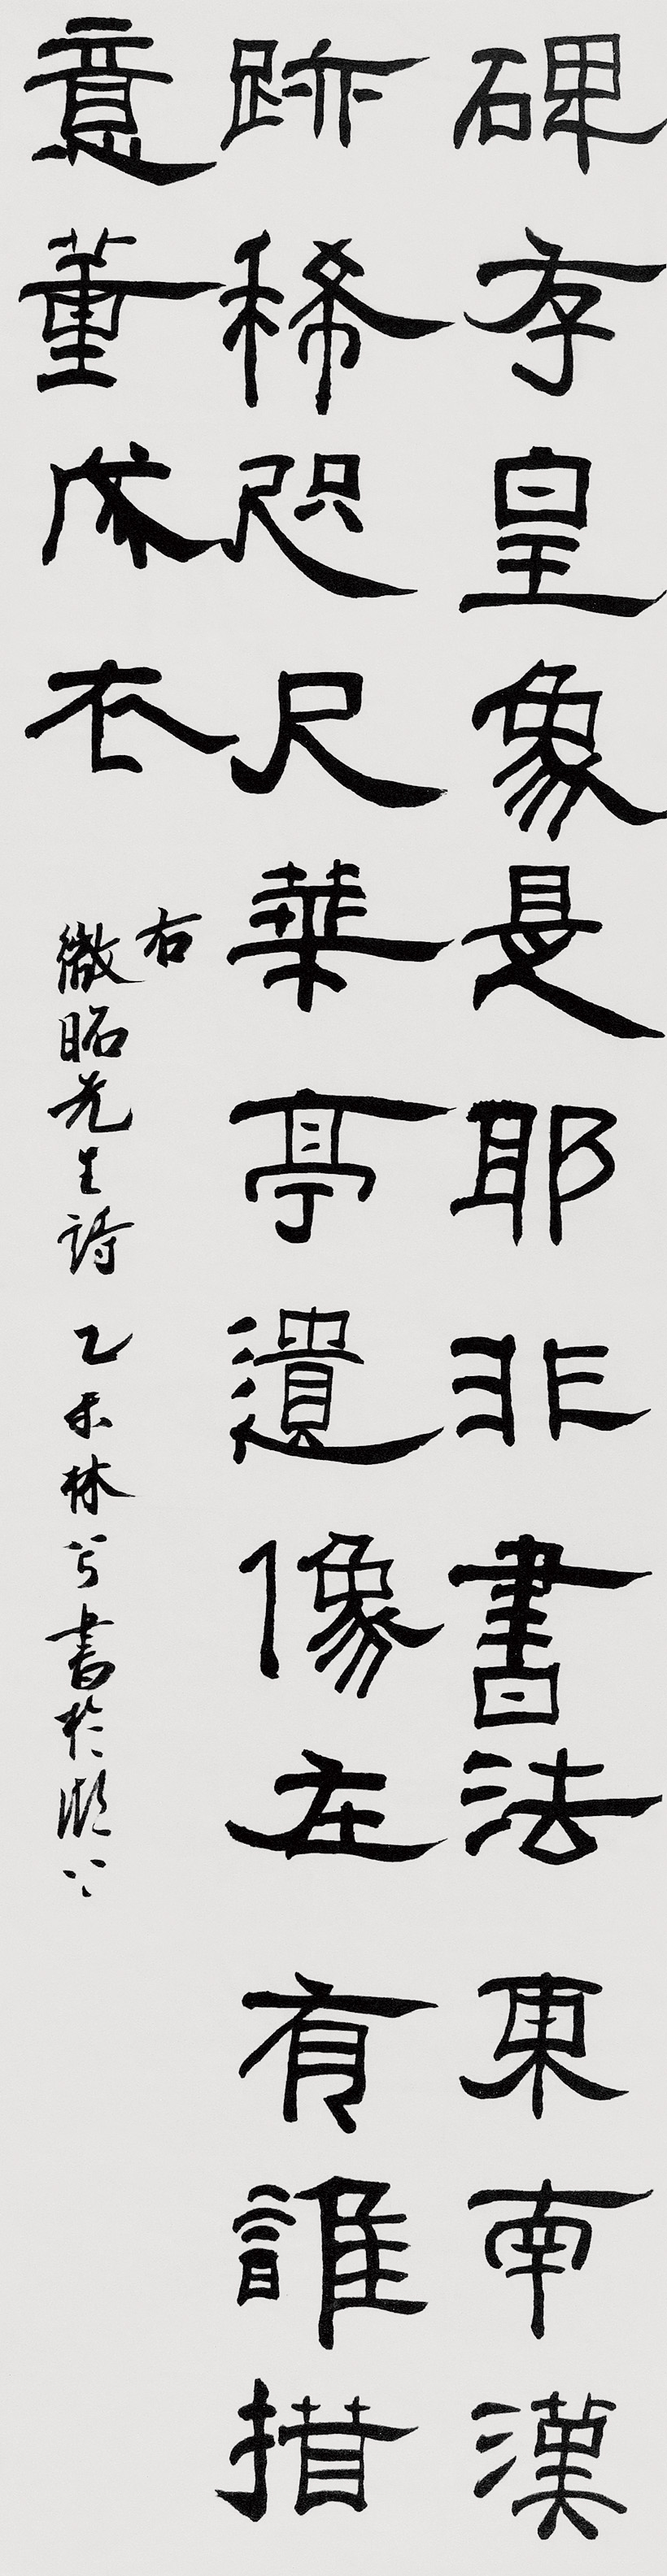 碑存皇象是耶非書法東南漢
跡稀咫尺華亭遺像在有誰措
意董成衣
右
徵昭先生詩乙未林
書於